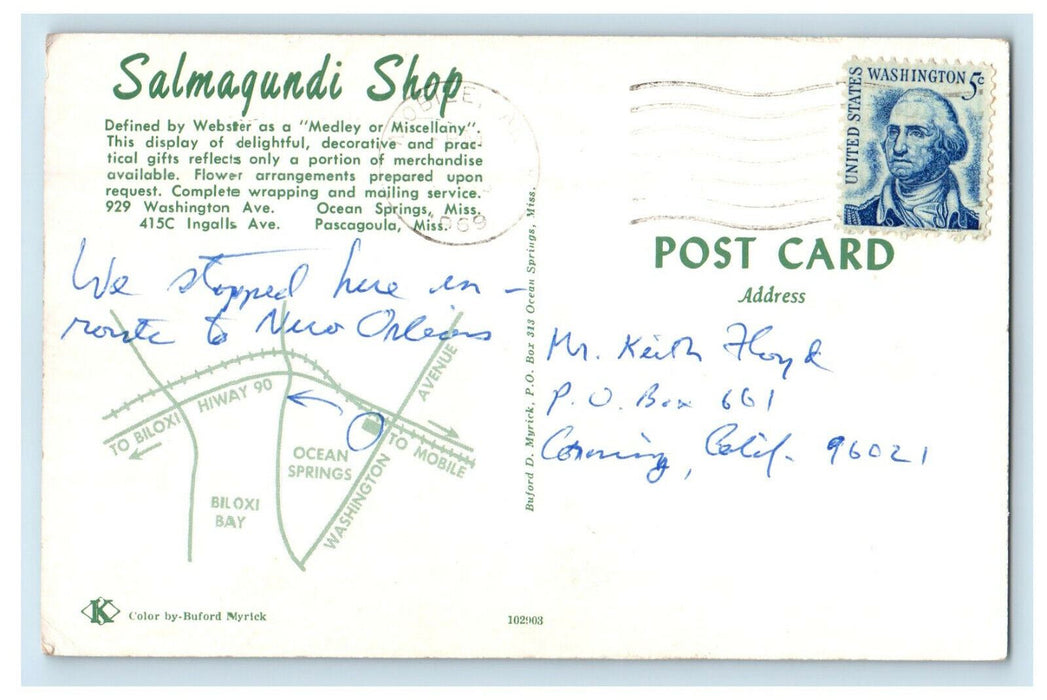 Salmagundi Shop
Defined by Webster as a "Medley or Miscellany".
This display of delightful, decorative and prac-
tical gifts reflects only a portion of merchandise
available. Flower arrangements prepared upon
request. Complete wrapping and mailing service.
929 Washington Ave. Ocean Springs, Miss.
415C Ingalls Ave. Pascagoula, Miss.
We stopped here en -
route to New Orleans
HIWAY 90
TO BILOXI
AVENUE
TO MOBILE
OCEAN
SPRINGS
WASHINGTON
BILOXI
BAY
K Color by-Buford Myrick
102903
Buford D. Myrick, P.O. Box 313 Ocean Springs, Miss.
UNITED STATES
WASHINGTON 5c
POST CARD
Address
Mr. Keith Floyd
P. O. Box 661
Corning, Calif. 96021